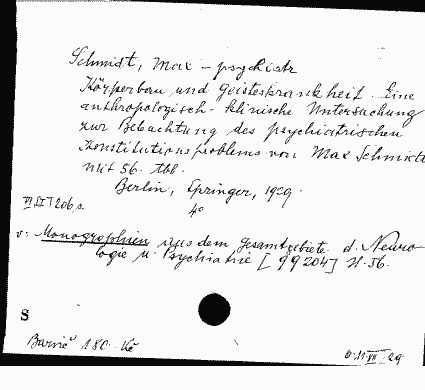 Schmidt, Max - psychiatr
Körperbau und Geisteskrankheit. Eine
anthropologisch-klinische Untersuchung
zur Beobachtung des psychiatrischen
Konstitutionsproblems von Max Schmidt
mit 56. Abb.
Berlin, Springer, 1929.
4º
206 s.
v: Monografphien aus dem Gesamtgebiete d. Neuro-
logie u. Psychiatrie [99204] H. 56.
S
180. Kč